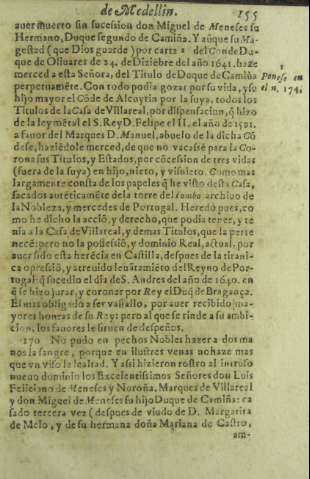 de Medellin. 155
auer muerto sin sucession don Miguel de Meneses su
Hermano, Duque segundo de Camiña. Y aũque su Ma-
gestad (que Dios guarde) por carta del Conde Du-
que de Oliuares de 24. de Diziẽbre del año 1641. haze
merced a esta Señora, del Titulo de Duque de Camiña
perpetuamẽte. Con todo podia gozar por su vida, y su
Ponese en
el n. 174.
hijo mayor el Cõde de Alcoytin por la suya, todos los
Titulos de la Casa de Villareal, por dispensacion, q̃ hizo
de la ley mẽtal el S. Rey D. Felipe el II. el año de 1591.
a fauor del Marques D. Manuel, abuelo de la dicha Cõ
desa, haziẽdole merced, de que no vacasse para la Co-
rona sus Titulos, y Estados, por cõcession de tres vidas
(fuera de la suya) en hijo, nieto, y visnieto. Como mas
largamente consta de los papeles q̃ he visto desta Casa,
sacados autẽticamẽte de la torre del tombo archiuo de
la Nobleza, y mercedes de Portugal. Heredò pues, co
mo he dicho la acciõ, y derecho, que podia tener, y te
nia a la Casa de Villareal, y demas Titulos, que la perte
necẽ: pero no la possessiõ, y dominio Real, actual, por
auer sido esta herẽcia en Castilla, despues de la tirani-
ca opresiõ, y atreuido leuãtamiẽto del Reyno de Por-
tugal: q̃ sucedio el dia de S. Andres del año de 1640. en
q̃ se hizo jurar, y coronar por Rey el Duq̃ de Bragança.
El mas obligado a ser vassallo, por auer recibido ma-
yores honras de su Rey: pero al que se rinde a su ambi-
cion, los fauores le siruen de despeños.
170 No pudo en pechos Nobles hazer a dos ma
nos la sangre, porque en ilustres venas no haze mas
que vn viso la lealtad. Y assi hizieron rostro al intruso
nueuo dominio los Excelentissimos Señores don Luis
Feliciano de Meneses y Noroña, Marques de Villareal
y don Miguel de Meneses su hijo Duque de Camiña: ca
sado tercera vez (despues de viudo de D. Margarita
de Melo, y de su hermana doña Mariana de Castro,
am-